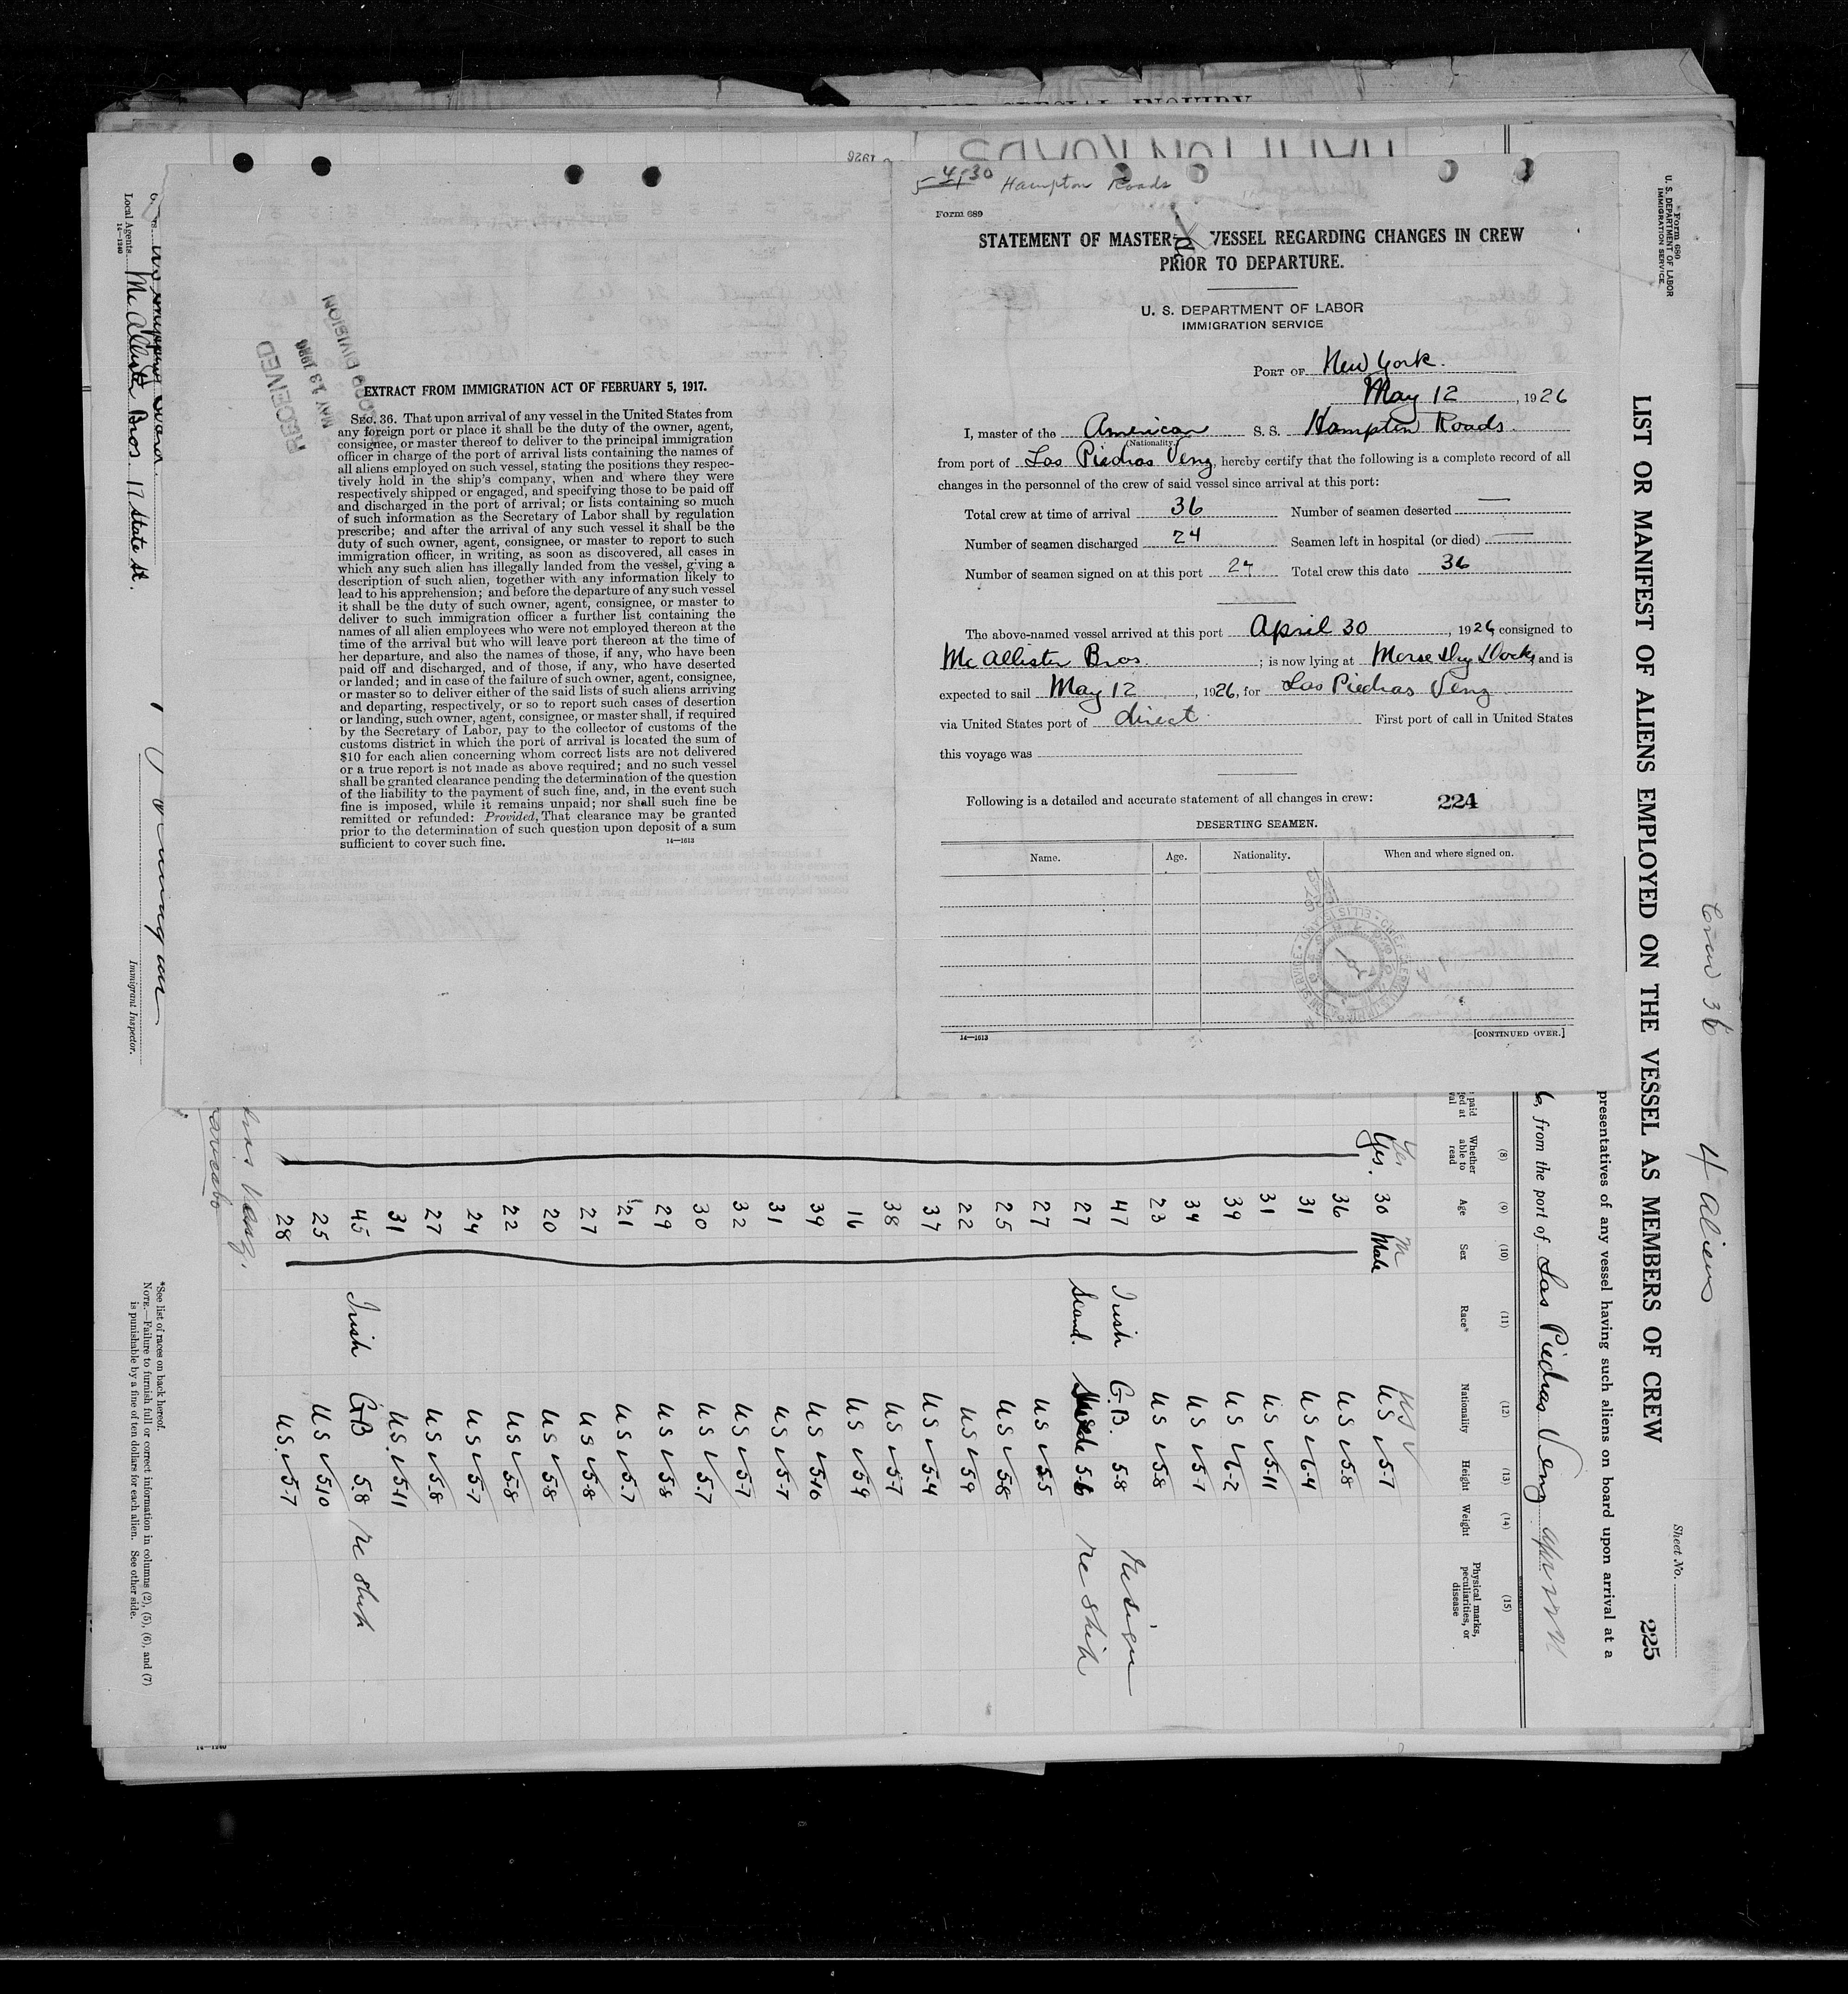 SPECIAL INQUIRY
HAMPTON ROADS
1926
Hampton Roads
Form 689
STATEMENT OF MASTER VESSEL REGARDING CHANGES IN CREW
PRIOR TO DEPARTURE.
U. S. DEPARTMENT OF LABOR
IMMIGRATION SERVICE
PORT OF New York.
May 12, 1926
I, master of the American S. S. Hampton Roads.
(Nationality.)
from port of Las Piedras Venz, hereby certify that the following is a complete record of all
changes in the personnel of the crew of said vessel since arrival at this port:
Total crew at time of arrival 36 Number of seamen deserted —
Number of seamen discharged 24 Seamen left in hospital (or died) —
Number of seamen signed on at this port 24 Total crew this date 36
The above-named vessel arrived at this port April 30, 1926, consigned to
McAllister Bros. ; is now lying at Morse Dry Dock, and is
expected to sail May 12, 1926, for Las Piedras Venz
via United States port of direct. First port of call in United States
this voyage was
Following is a detailed and accurate statement of all changes in crew: 224
DESERTING SEAMEN.
Name. Age. Nationality. When and where signed on.
14—1613 [CONTINUED OVER.]
EXTRACT FROM IMMIGRATION ACT OF FEBRUARY 5, 1917.
SEC. 36. That upon arrival of any vessel in the United States from
any foreign port or place it shall be the duty of the owner, agent,
consignee, or master thereof to deliver to the principal immigration
officer in charge of the port of arrival lists containing the names of
all aliens employed on such vessel, stating the positions they respec-
tively hold in the ship's company, when and where they were
respectively shipped or engaged, and specifying those to be paid off
and discharged in the port of arrival; or lists containing so much
of such information as the Secretary of Labor shall by regulation
prescribe; and after the arrival of any such vessel it shall be the
duty of such owner, agent, consignee, or master to report to such
immigration officer, in writing, as soon as discovered, all cases in
which any such alien has illegally landed from the vessel, giving a
description of such alien, together with any information likely to
lead to his apprehension; and before the departure of any such vessel
it shall be the duty of such owner, agent, consignee, or master to
deliver to such immigration officer a further list containing the
names of all alien employees who were not employed thereon at the
time of the arrival but who will leave port thereon at the time of
her departure, and also the names of those, if any, who have been
paid off and discharged, and of those, if any, who have deserted
or landed; and in case of the failure of such owner, agent, consignee,
or master so to deliver either of the said lists of such aliens arriving
and departing, respectively, or so to report such cases of desertion
or landing, such owner, agent, consignee, or master shall, if required
by the Secretary of Labor, pay to the collector of customs of the
customs district in which the port of arrival is located the sum of
$10 for each alien concerning whom correct lists are not delivered
or a true report is not made as above required; and no such vessel
shall be granted clearance pending the determination of the question
of the liability to the payment of such fine, and, in the event such
fine is imposed, while it remains unpaid; nor shall such fine be
remitted or refunded: Provided, That clearance may be granted
prior to the determination of such question upon deposit of a sum
sufficient to cover such fine.
14—1613
RECEIVED
MAY 13
RECORD DIVISION
Crew 36 4 Aliens
Form 680
U. S. DEPARTMENT OF LABOR
IMMIGRATION SERVICE
Sheet No.
LIST OR MANIFEST OF ALIENS EMPLOYED ON THE VESSEL AS MEMBERS OF CREW 225
presentatives of any vessel having such aliens on board upon arrival at a
6, from the port of Las Piedras Venz
(8) (9) (10) (11) (12) (13) (14) (15)
Whether able to read Age Sex Race* Nationality Height Weight Physical marks, peculiarities, or disease
Yes M US
Yes. 30 Male US 5-7
36 US 5-8
31 US 6-4
31 US 5-11
39 US 6-2
34 US 5-7
23 US 5-8
47 Irish G.B. 5-8 Resign
27 Scand. Swede 5-6 re ship
27 US 5-5
25 US 5-8
22 US 5-9
37 US 5-4
38 US 5-7
16 US 5-9
39 US 5-10
31 US 5-7
32 US 5-7
30 US 5-7
29 US 5-8
21 US 5-7
27 US 5-8
20 US 5-8
22 US 5-8
24 US 5-7
27 US 5-8
31 US. 5-11
45 Irish G.B 5.8 re ship
25 US 5-10
28 US. 5-7
*See list of races on back hereof.
NOTE.—Failure to furnish full or correct information in columns (2), (5), (6), and (7)
is punishable by a fine of ten dollars for each alien. See other side.
Immigrant Inspector.
Local Agents McAllister Bros 17 State St.
14—1240
14—1240